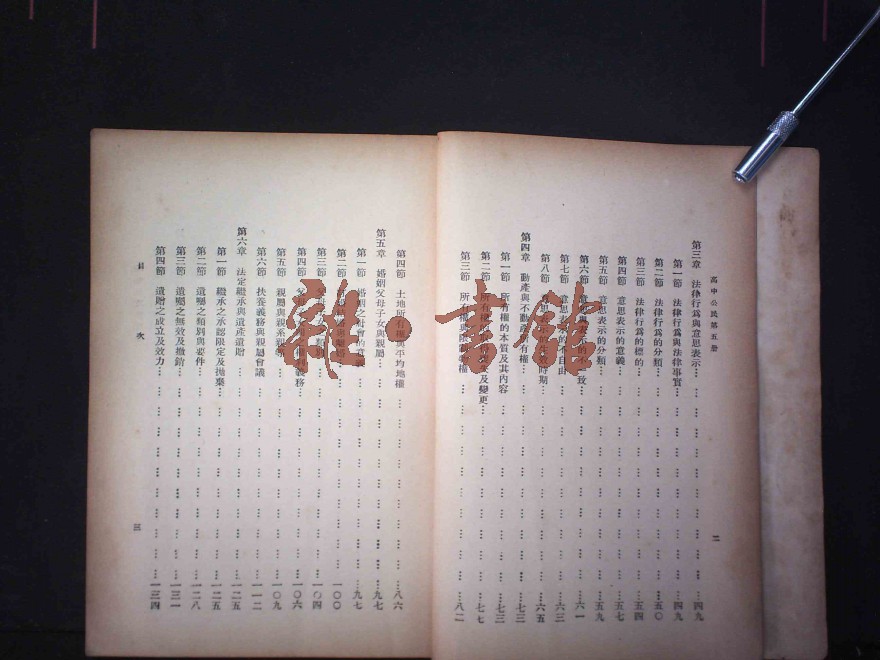 高中公民第五册
二
第三章 法律行為與意思表示 四九
第一節 法律行為與法律事實 四九
第二節 法律行為的分類 五〇
第三節 法律行為的標的 五四
第四節 意思表示的意義 五七
第五節 意思表示的分類 五九
第六節 意思與表示的不一致 六一
第七節 意思表示的不自由 六三
第八節 意思表示的 時期 六五
第四章 動產與不動產所有權 七三
第一節 所有權的本質及其內容 七三
第二節 所有權的 及變更 七七
第三節 所有權與 權 八二
第四節 土地所有權與平均地權 八六
第五章 婚姻父母子女與親屬 九七
第一節 婚姻之社會的意義 九七
第二節 一〇〇
第三節 父母子女 一〇四
第四節 父母子女 權利義務 一〇六
第五節 親屬與親系親等 一〇九
第六節 扶養義務與親屬會議 一一二
第六章 法定繼承與遺產遺贈 一二五
第一節 繼承之承認限定及拋棄 一二五
第二節 遺囑之類別與要件 一二八
第三節 遺囑之無效及撤銷 一三一
第四節 遺贈之成立及效力 一三四
目 次
三
雜·書館